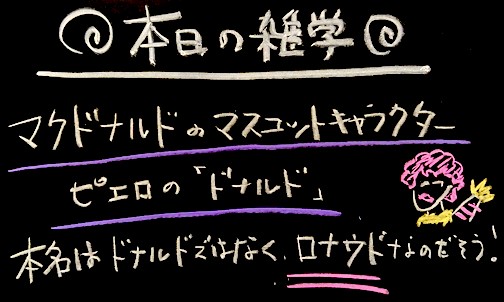 本日の雑学
マクドナルドのマスコットキャラクター
ピエロの「ドナルド」
本名はドナルドではなく、ロナウドなのだそう!